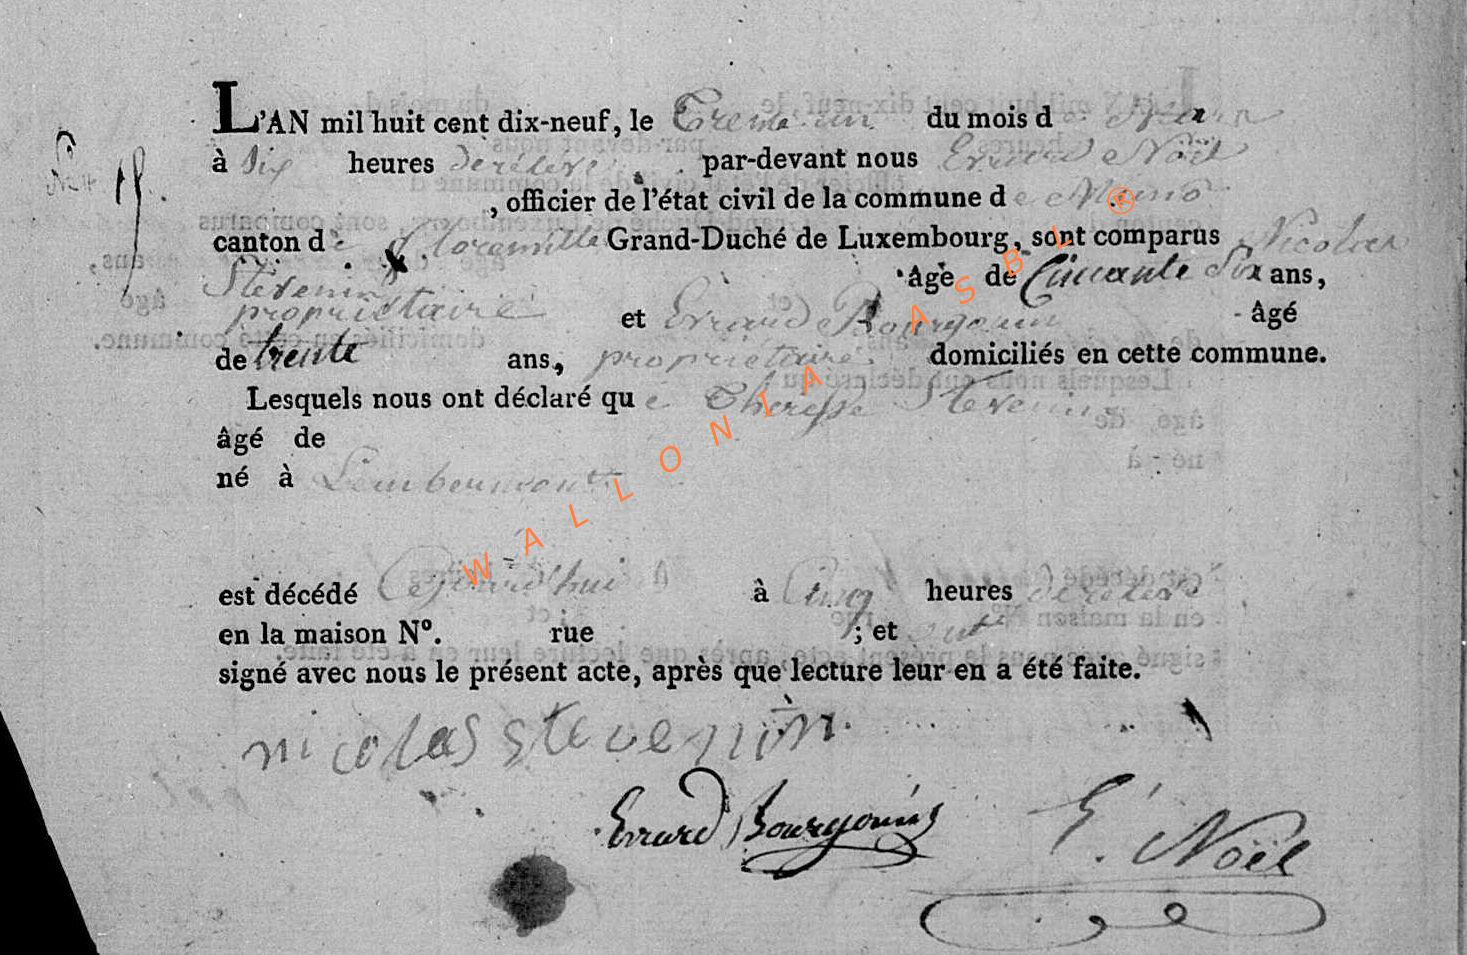 L'AN mil huit cent dix-neuf, le Trente un du mois de Mars
à Six heures de relevé par-devant nous Errard Noël
, officier de l'état civil de la commune de Muno
canton de Florenville Grand-Duché de Luxembourg, sont comparus Nicolas
Stévenin âgé de Cincante Six ans,
propriétaire et Errard Bourgouin âgé
de trente ans, propriétaire domiciliés en cette commune.
Lesquels nous ont déclaré que Theresse Stevenin
âgé de
né à Lambermont
est décédé Cejourd'hui à Cinq heures de relevé
en la maison Nº. rue ; et ont
signé avec nous le présent acte, après que lecture leur en a été faite.
nicolas stevenin
Errard Bourgouin E. Noël
WALLONIA ASBL ®